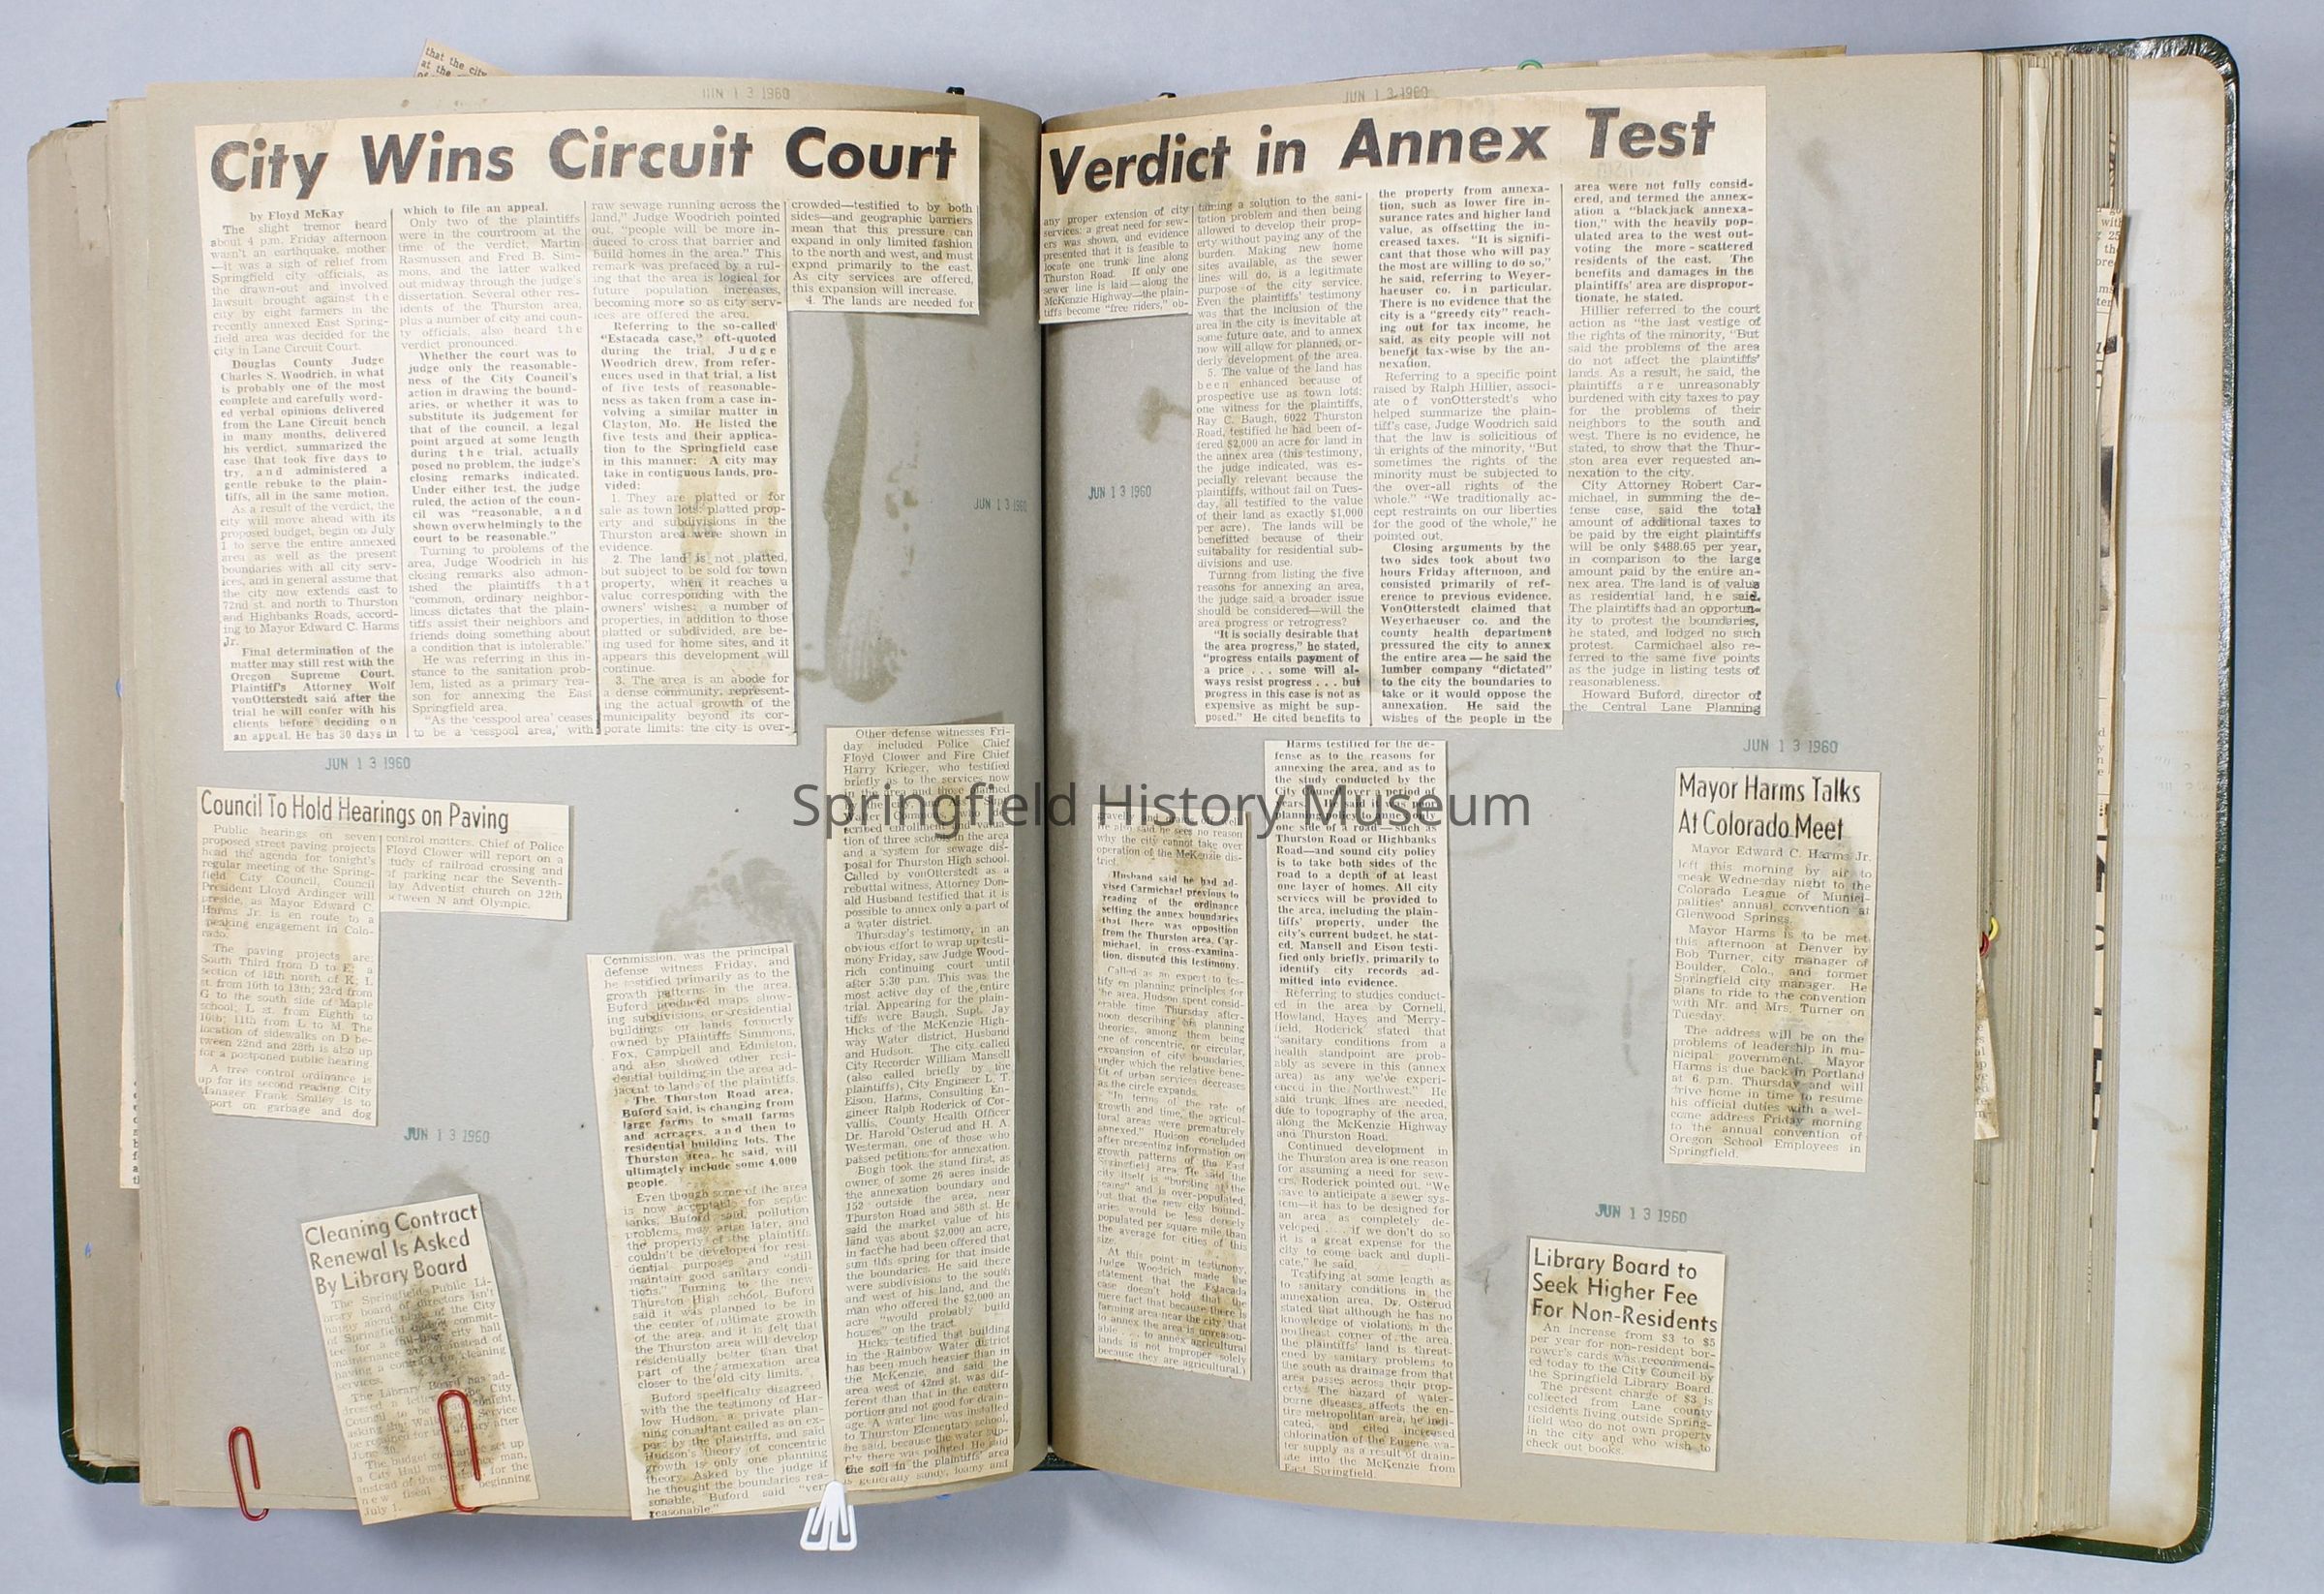 that the city
at the
JUN 1 3 1960
JUN 1 3 1960
City Wins Circuit Court
Verdict in Annex Test
by Floyd McKay
The slight tremor heard
about 4 p.m. Friday afternoon
wasn't an earthquake, mother
—it was a sigh of relief from
Springfield city officials, as
the drawn-out and involved
lawsuit brought against the
city by eight farmers in the
recently annexed East Spring-
field area was decided for the
city in Lane Circuit Court.
Douglas County Judge
Charles S. Woodrich, in what
is probably one of the most
complete and carefully word-
ed verbal opinions delivered
from the Lane Circuit bench
in many months, delivered
his verdict, summarized the
case that took five days to
try, and administered a
gentle rebuke to the plain-
tiffs, all in the same motion.
As a result of the verdict, the
city will move ahead with its
proposed budget, begin on July
1 to serve the entire annexed
area as well as the present
boundaries with all city serv-
ices, and in general assume that
the city now extends east to
72nd st. and north to Thurston
and Highbanks Roads, accord-
ing to Mayor Edward C. Harms
Jr.
Final determination of the
matter may still rest with the
Oregon Supreme Court.
Plaintiff's Attorney Wolf
vonOtterstedt said after the
trial he will confer with his
clients before deciding on
an appeal. He has 30 days in
which to file an appeal.
Only two of the plaintiffs
were in the courtroom at the
time of the verdict, Martin
Rasmussen and Fred B. Sim-
mons, and the latter walked
out midway through the judge's
dissertation. Several other res-
idents of the Thurston area,
plus a number of city and coun-
ty officials, also heard the
verdict pronounced.
Whether the court was to
judge only the reasonable-
ness of the City Council's
action in drawing the bound-
aries, or whether it was to
substitute its judgement for
that of the council, a legal
point argued at some length
during the trial, actually
posed no problem, the judge's
closing remarks indicated.
Under either test, the judge
ruled, the action of the coun-
cil was "reasonable, and
shown overwhelmingly to the
court to be reasonable."
Turning to problems of the
area, Judge Woodrich in his
closing remarks also admon-
ished the plaintiffs that
"common, ordinary neighbor-
liness dictates that the plain-
tiffs assist their neighbors and
friends doing something about
a condition that is intolerable."
He was referring in this in-
stance to the sanitation prob-
lem, listed as a primary rea-
son for annexing the East
Springfield area.
"As the 'cesspool area' ceases
to be a 'cesspool area,' with
raw sewage running across the
land," Judge Woodrich pointed
out, "people will be more in-
duced to cross that barrier and
build homes in the area." This
remark was prefaced by a rul-
ing that the area is logical for
future population increases,
becoming more so as city serv-
ices are offered the area.
Referring to the so-called
"Estacada case," oft-quoted
during the trial, Judge
Woodrich drew, from refer-
ences used in that trial, a list
of five tests of reasonable-
ness as taken from a case in-
volving a similar matter in
Clayton, Mo. He listed the
five tests and their applica-
tion to the Springfield case
in this manner: A city may
take in contiguous lands, pro-
vided:
1. They are platted or for
sale as town lots: platted prop-
erty and subdivisions in the
Thurston area were shown in
evidence.
2. The land is not platted,
but subject to be sold for town
property, when it reaches a
value corresponding with the
owners' wishes: a number of
properties, in addition to those
platted or subdivided, are be-
ing used for home sites, and it
appears this development will
continue.
3. The area is an abode for
a dense community, represent-
ing the actual growth of the
municipality beyond its cor-
porate limits: the city is over-
crowded—testified to by both
sides—and geographic barriers
mean that this pressure can
expand in only limited fashion
to the north and west, and must
expnd primarily to the east.
As city services are offered,
this expansion will increase.
4. The lands are needed for
any proper extension of city
services: a great need for sew-
ers was shown, and evidence
presented that it is feasible to
locate one trunk line along
Thurston Road. If only one
sewer line is laid—along the
McKenzie Highway—the plain-
tiffs become "free riders," ob-
taining a solution to the sani-
tation problem and then being
allowed to develop their prop-
erty without paying any of the
burden. Making new home
sites available, as the sewer
lines will do, is a legitimate
purpose of the city service.
Even the plaintiffs' testimony
was that the inclusion of the
area in the city is inevitable at
some future date, and to annex
now will allow for planned, or-
derly development of the area.
5. The value of the land has
been enhanced because of
prospective use as town lots:
one witness for the plaintiffs,
Ray C. Baugh, 6022 Thurston
Road, testified he had been of-
fered $2,000 an acre for land in
the annex area (this testimony,
the judge indicated, was es-
pecially relevant because the
plaintiffs, without fail on Tues-
day, all testified to the value
of their land as exactly $1,000
per acre). The lands will be
benefitted because of their
suitability for residential sub-
divisions and use.
Turning from listing the five
reasons for annexing an area,
the judge said a broader issue
should be considered—will the
area progress or retrogress?
"It is socially desirable that
the area progress," he stated,
"progress entails payment of
a price . . . some will al-
ways resist progress . . . but
progress in this case is not as
expensive as might be sup-
posed." He cited benefits to
the property from annexa-
tion, such as lower fire in-
surance rates and higher land
value, as offsetting the in-
creased taxes. "It is signifi-
cant that those who will pay
the most are willing to do so,"
he said, referring to Weyer-
haeuser co. in particular.
There is no evidence that the
city is a "greedy city" reach-
ing out for tax income, he
said, as city people will not
benefit tax-wise by the an-
nexation.
Referring to a specific point
raised by Ralph Hillier, associ-
ate of vonOtterstedt's who
helped summarize the plain-
tiff's case, Judge Woodrich said
that the law is solicitious of
th erights of the minority, "But
sometimes the rights of the
minority must be subjected to
the over-all rights of the
whole." "We traditionally ac-
cept restraints on our liberties
for the good of the whole," he
pointed out.
Closing arguments by the
two sides took about two
hours Friday afternoon, and
consisted primarily of ref-
erence to previous evidence.
VonOtterstedt claimed that
Weyerhaeuser co. and the
county health department
pressured the city to annex
the entire area—he said the
lumber company "dictated"
to the city the boundaries to
take or it would oppose the
annexation. He said the
wishes of the people in the
area were not fully consid-
ered, and termed the annex-
ation a "blackjack annexa-
tion," with the heavily pop-
ulated area to the west out-
voting the more-scattered
residents of the east. The
benefits and damages in the
plaintiffs' area are dispropor-
tionate, he stated.
Hillier referred to the court
action as "the last vestige of
the rights of the minority, "But
said the problems of the area
do not affect the plaintiffs'
lands. As a result, he said, the
plaintiffs are unreasonably
burdened with city taxes to pay
for the problems of their
neighbors to the south and
west. There is no evidence, he
stated, to show that the Thur-
ston area ever requested an-
nexation to the city.
City Attorney Robert Car-
michael, in summing the de-
fense case, said the total
amount of additional taxes to
be paid by the eight plaintiffs
will be only $488.65 per year,
in comparison to the large
amount paid by the entire an-
nex area. The land is of value
as residential land, he said.
The plaintiffs had an opportun-
ity to protest the boundaries,
he stated, and lodged no such
protest. Carmichael also re-
ferred to the same five points
as the judge in listing tests of
reasonableness.
Howard Buford, director of
the Central Lane Planning
JUN 1 3 1960
JUN 1 3 1960
JUN 1 3 1960
Council To Hold Hearings on Paving
Public hearings on seven
proposed street paving projects
head the agenda for tonight's
regular meeting of the Spring-
field City Council, Council
President Lloyd Ardinger will
preside, as Mayor Edward C.
Harms Jr. is en route to a
speaking engagement in Colo-
rado.
The paving projects are:
South Third from D to E; a
section of 18th north of K; L
st. from 10th to 13th; 23rd from
G to the south side of Maple
school; L st. from Eighth to
10th; 11th from L to M. The
location of sidewalks on D be-
tween 22nd and 28th is also up
for a postponed public hearing.
A tree control ordinance is
up for its second reading. City
Manager Frank Smiley is to
report on garbage and dog
control matters. Chief of Police
Floyd Clower will report on a
study of railroad crossing and
of parking near the Seventh-
day Adventist church on 12th
between N and Olympic.
JUN 1 3 1960
Cleaning Contract
Renewal Is Asked
By Library Board
The Springfield Public Li-
brary board of directors isn't
happy about plans of the City
of Springfield budget commit-
tee for a full-time city hall
maintenance instead of
having a contract for cleaning
services.
The Library Board has ad-
dressed a letter to the City
Council to be read tonight,
asking that Service
be retained for the library after
June 30.
The budget committee set up
a City Hall maintenance man,
instead of the for the
new fiscal year beginning
July 1.
Commission, was the principal
defense witness Friday, and
he testified primarily as to the
growth patterns in the area.
Buford produced maps show-
ing subdivisions or residential
buildings on lands formerly
owned by Plaintiffs Simmons,
Fox, Campbell and Edmiston,
and also showed other resi-
dential building in the area ad-
jacent to lands of the plaintiffs.
The Thurston Road area,
Buford said, is changing from
large farms to small farms
and acreages, and then to
residential building lots. The
Thurston area, he said, will
ultimately include some 4,000
people.
Even though some of the area
is now acceptable for septic
tanks, Buford said, pollution
problems may arise later, and
the property of the plaintiffs
couldn't be developed for resi-
dential purposes and still
maintain good sanitary condi-
tions." Turning to the new
Thurston High school, Buford
said it was planned to be in
the center of ultimate growth
of the area, and it is felt that
the Thurston area will develop
residentially better than that
part of the annexation area
closer to the old city limits.
Buford specifically disagreed
with the the testimony of Har-
low Hudson, a private plan-
ning consultant called as an ex-
pert by the plaintiffs, and said
Hudson's theory of concentric
growth is only one planning
theory. Asked by the judge if
he thought the boundaries rea-
sonable, Buford said "very
reasonable."
Other defense witnesses Fri-
day included Police Chief
Floyd Clower and Fire Chief
Harry Krieger, who testified
briefly as to the services now
in the area and those planned
by the city.
scribed enrollment and valua-
tion of three schools in the area
and a system for sewage dis-
posal for Thurston High school.
Called by vonOtterstedt as a
rebuttal witness, Attorney Don-
ald Husband testified that it is
possible to annex only a part of
a water district.
Thursday's testimony, in an
obvious effort to wrap up testi-
mony Friday, saw Judge Wood-
rich continuing court until
after 5:30 p.m. This was the
most active day of the entire
trial. Appearing for the plain-
tiffs were Baugh, Supt. Jay
Hicks of the McKenzie High-
way Water district, Husband
and Hudson. The city called
City Recorder William Mansell
(also called briefly by the
plaintiffs), City Engineer L. T.
Eison, Harms, Consulting En-
gineer Ralph Roderick of Cor-
vallis, County Health Officer
Dr. Harold Osterud and H. A.
Westerman, one of those who
passed petitions for annexation.
Bugh took the stand first, as
owner of some 26 acres inside
the annexation boundary and
152 outside the area, near
Thurston Road and 58th st. He
said the market value of his
land was about $2,000 an acre,
in fact he had been offered that
sum this spring for that inside
the boundaries. He said there
were subdivisions to the south
and west of his land, and the
man who offered the $2,000 an
acre "would probably build
houses" on the tract.
Hicks testified that building
in the Rainbow Water district
has been much heavier than in
the McKenzie, and said the
area west of 42nd st. was dif-
ferent than that in the eastern
portion and not good for drain-
age. A water line was installed
to Thurston Elementary school,
he said, because the water sup-
ply there was polluted. He said
the soil in the plaintiffs' area
is generally sandy, loamy and
He also said he sees no reason
why the city cannot take over
operation of the McKenzie dis-
trict.
Husband said he had ad-
vised Carmichael previous to
reading of the ordinance
setting the annex boundaries
that there was opposition
from the Thurston area. Car-
michael, in cross-examina-
tion, disputed this testimony.
Called as an expert to tes-
tify on planning principles for
the area, Hudson spent consid-
erable time Thursday after-
noon describing his planning
theories, among them being
one of concentric, or circular,
expansion of city boundaries,
under which the relative bene-
fit of urban services decreases
as the circle expands.
"In terms of the rate of
growth and time, the agricul-
tural areas were prematurely
annexed," Hudson concluded
after presenting information on
growth patterns of the East
Springfield area. He said the
city itself is "bursting at the
seams" and is over-populated,
but that the new city bound-
aries would be less densely
populated per square mile than
the average for cities of this
size.
At this point in testimony,
Judge Woodrich made the
statement that the Estacada
case doesn't hold that the
mere fact that because there is
farming area near the city, that
to annex the area is unreason-
able . . . to annex agricultural
lands is not improper solely
because they are agricultural.)
Harms testified for the de-
fense as to the reasons for
annexing the area, and as to
the study conducted by the
City Council over a period of
years. He said it was not
planning policy to annex only
one side of a road—such as
Thurston Road or Highbanks
Road—and sound city policy
is to take both sides of the
road to a depth of at least
one layer of homes. All city
services will be provided to
the area, including the plain-
tiffs' property, under the
city's current budget, he stat-
ed. Mansell and Eison testi-
fied only briefly, primarily to
identify city records ad-
mitted into evidence.
Referring to studies conduct-
ed in the area by Cornell,
Howland, Hayes and Merry-
field, Roderick stated that
"sanitary conditions from a
health standpoint are prob-
ably as severe in this (annex
area) as any we've experi-
enced in the Northwest." He
said trunk lines are needed,
due to topography of the area,
along the McKenzie Highway
and Thurston Road.
Continued development in
the Thurston area is one reason
for assuming a need for sew-
ers, Roderick pointed out. "We
have to anticipate a sewer sys-
tem—it has to be designed for
an area as completely de-
veloped . . . if we don't do so
it is a great expense for the
city to come back and dupli-
cate," he said.
Testifying at some length as
to sanitary conditions in the
annexation area, Dr. Osterud
stated that although he has no
knowledge of violations in the
northeast corner of the area,
the plaintiffs' land is threat-
ened by sanitary problems to
the south as drainage from that
area passes across their prop-
erty. The hazard of water-
borne diseases affects the en-
tire metropolitan area, he indi-
cated, and cited increased
chlorination of the Eugene wa-
ter supply as a result of drain-
age into the McKenzie from
East Springfield.
JUN 1 3 1960
Mayor Harms Talks
At Colorado Meet
Mayor Edward C. Harms Jr.
left this morning by air to
speak Wednesday night to the
Colorado League of Munici-
palities' annual convention at
Glenwood Springs.
Mayor Harms is to be met
this afternoon at Denver by
Bob Turner, city manager of
Boulder, Colo., and former
Springfield city manager. He
plans to ride to the convention
with Mr. and Mrs. Turner on
Tuesday.
The address will be on the
problems of leadership in mu-
nicipal government. Mayor
Harms is due back in Portland
at 6 p.m. Thursday and will
drive home in time to resume
his official duties with a wel-
come address Friday morning
to the annual convention of
Oregon School Employees in
Springfield.
JUN 1 3 1960
Library Board to
Seek Higher Fee
For Non-Residents
An increase from $3 to $5
per year for non-resident bor-
rower's cards was recommend-
ed today to the City Council by
the Springfield Library Board.
The present charge of $3 is
collected from Lane county
residents living outside Spring-
field who do not own property
in the city and who wish to
check out books.
Springfield History Museum